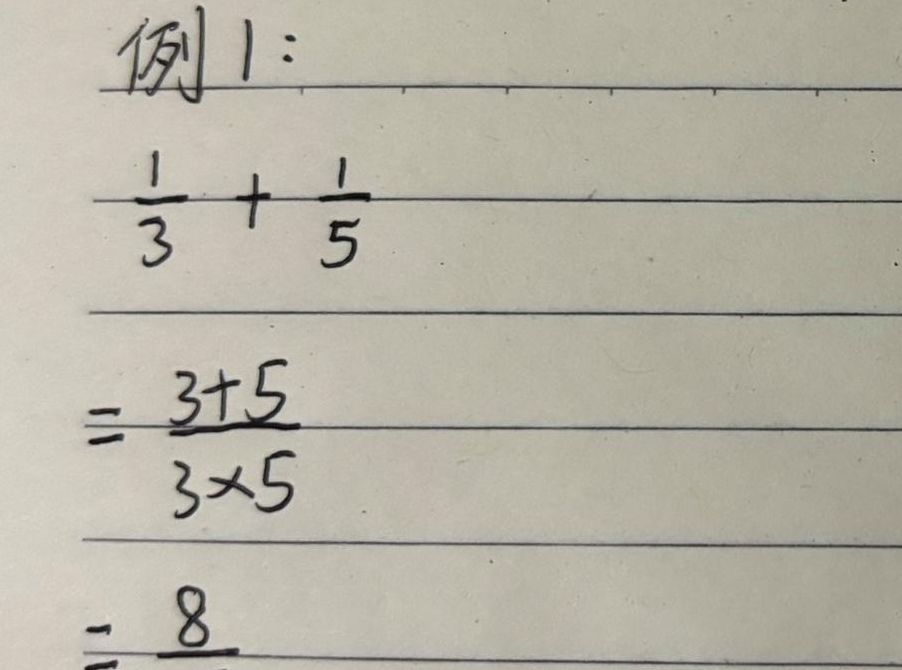 例1:
1/3 + 1/5
= (3+5)/(3×5)
= 8/